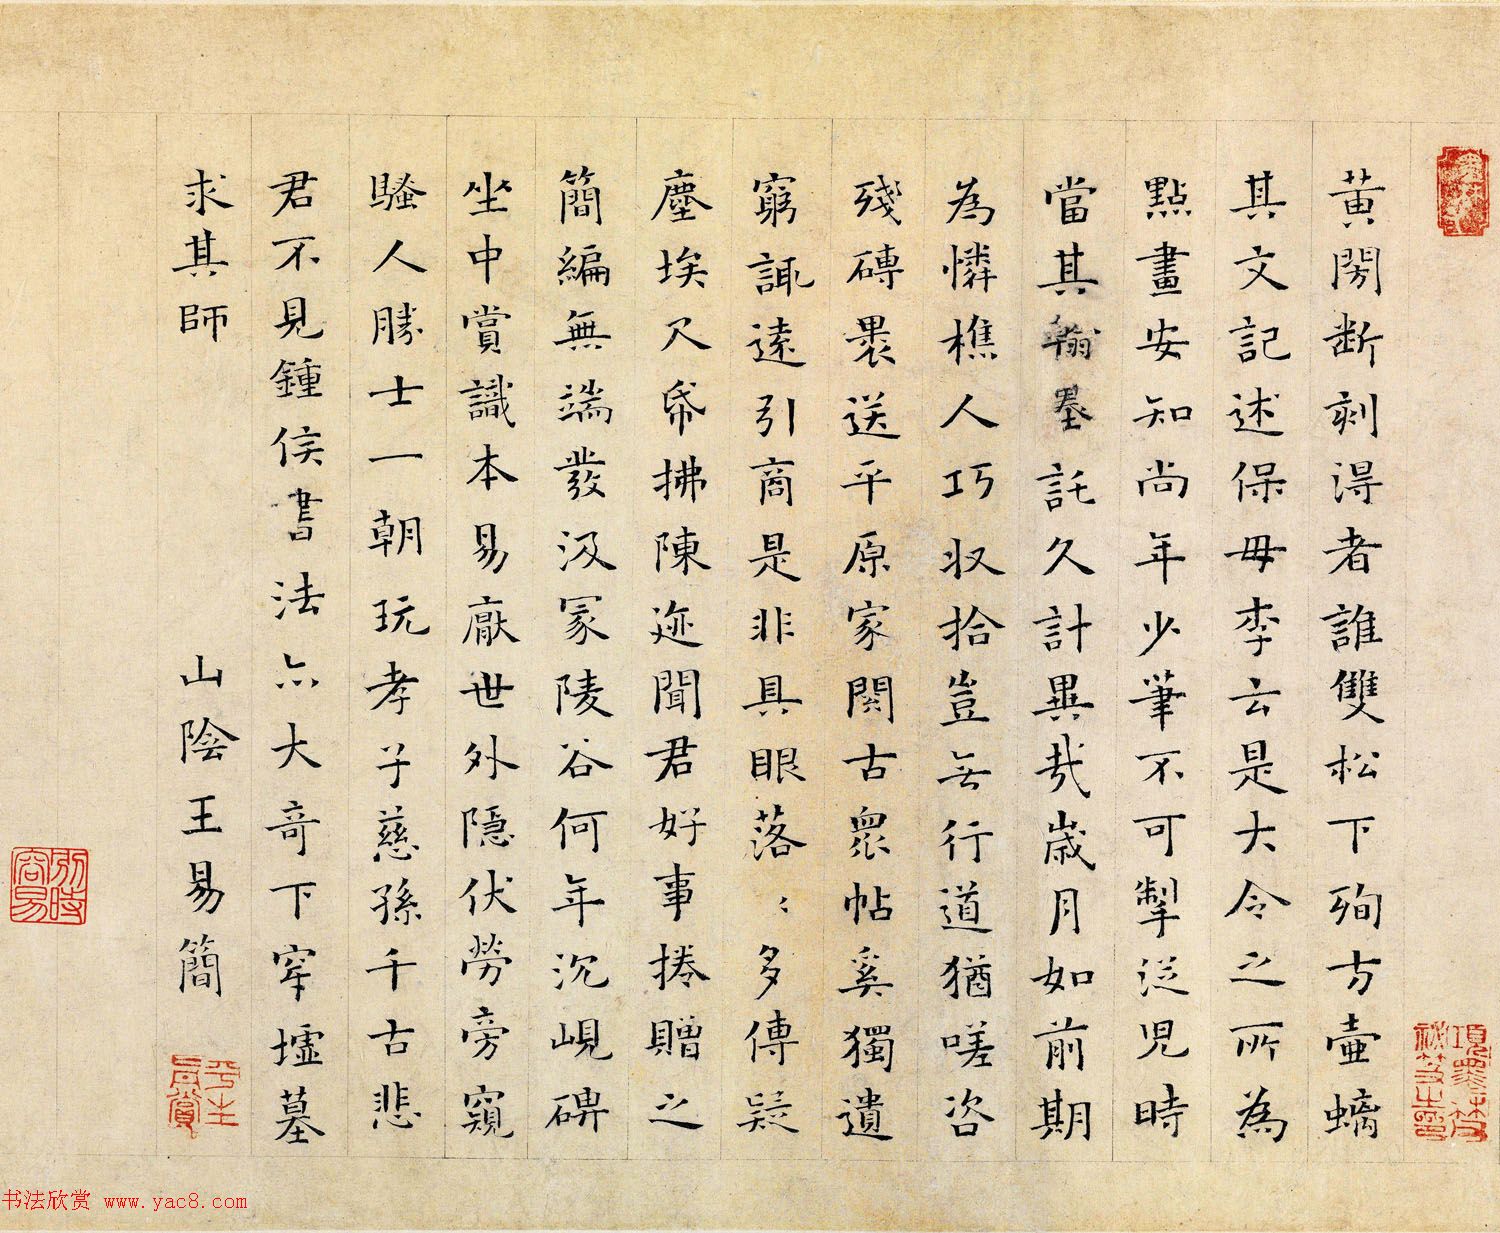 黃閍断刻淂者誰雙松下殉方壷螭
其文記述保毋李云是大令之所為
點畫安知尚年少筆不可掣迳児時
當其翰墨託久計異㢤歳月如前期
為憐樵人巧収拾豈无行道猶嗟咨
殘磚褁送平原家閱古衆帖奚獨遺
窮諏逺引商是非具眼落〻多傳疑
塵埃尺帋拂陳迹聞君好事捲贈之
簡編無端發汲冡陵谷何年沉峴碑
坐中賞識本易厭世外隠伏勞旁窺
騷人勝士一朝玩孝子慈孫千古悲
君不見鍾侯書法亦大奇下穽墟墓
求其師
山陰王易簡
书法欣赏 www.yac8.com